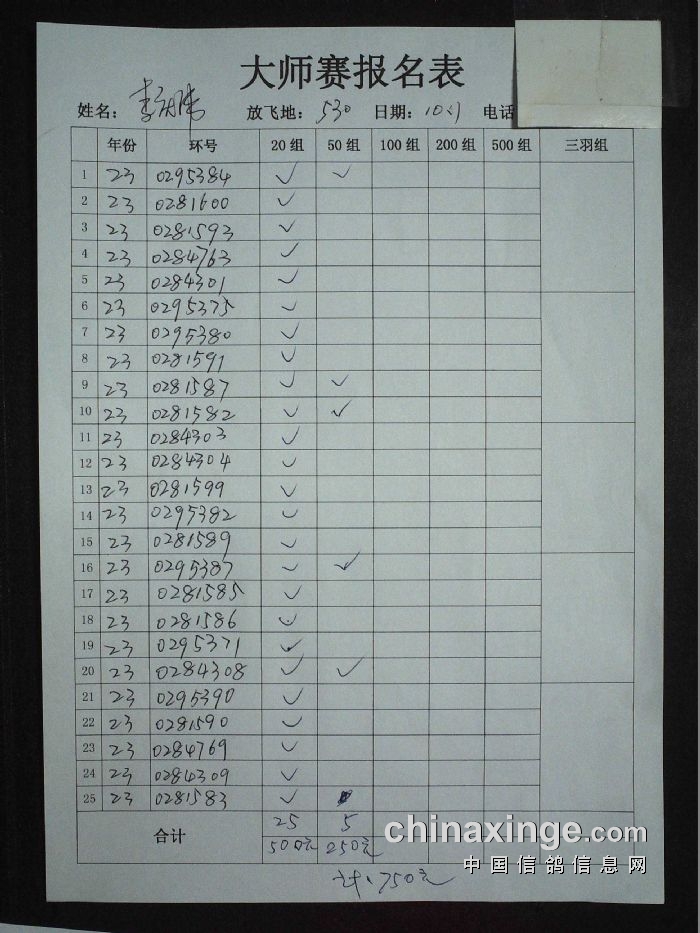 大师赛报名表
姓名： 李 放飞地：530 日期：10.1 电话
年份 环号 20 组 50 组 100 组 200 组 500 组 三羽组
1 23 0295384 ✓ ✓
2 23 0281600 ✓
3 23 0281593 ✓
4 23 0284763 ✓
5 23 0284301 ✓
6 23 0295375 ✓
7 23 0295380 ✓
8 23 0281591 ✓
9 23 0281587 ✓ ✓
10 23 0281582 ✓ ✓
11 23 0284303 ✓
12 23 0284304 ✓
13 23 0281599 ✓
14 23 0295382 ✓
15 23 0281589 ✓
16 23 0295387 ✓ ✓
17 23 0281585 ✓
18 23 0281586 ✓
19 23 0295371 ✓
20 23 0284308 ✓ ✓
21 23 0295390 ✓
22 23 0281590 ✓
23 23 0284769 ✓
24 23 0284309 ✓
25 23 0281583 ✓
合计 25 5
500元 250元
计:750元
chinaxinge.com
中国信鸽信息网